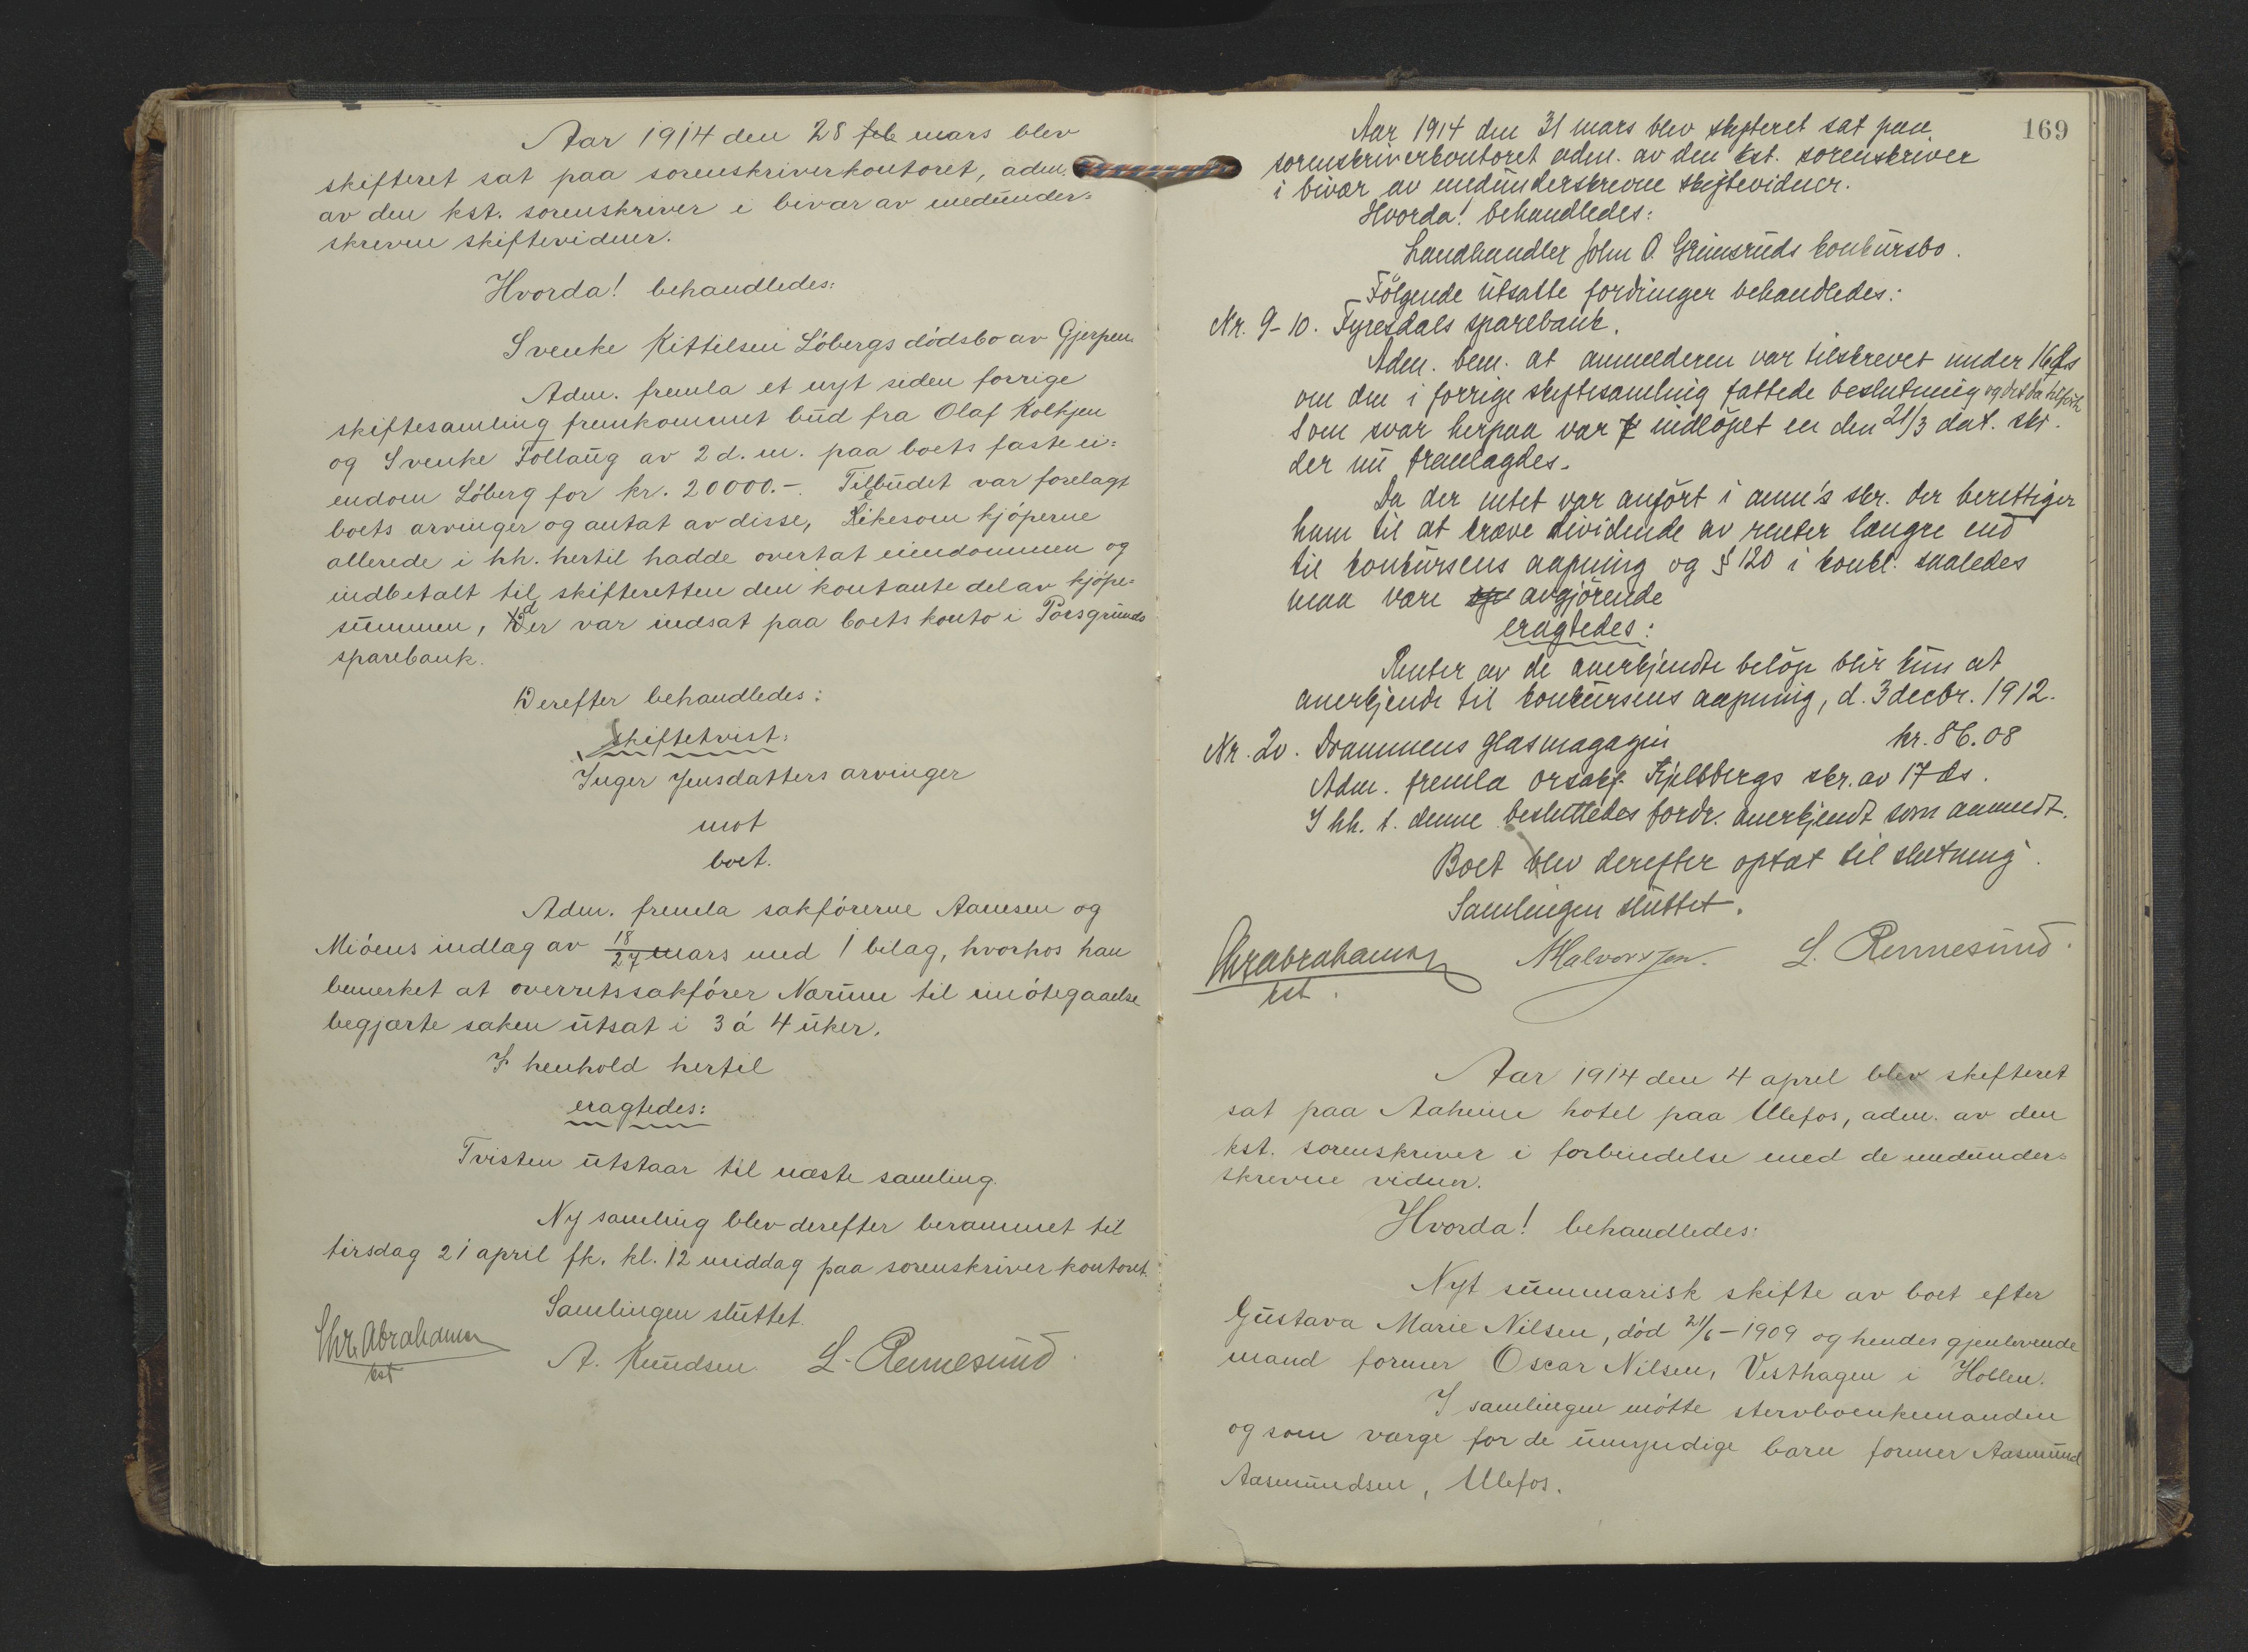 Aar 1914 den 28 feb mars blev
skifteret sat paa sorenskriverkontoret, adm.
av den kst. sorenskriver i bivær av medunder=
skrevne skiftevidner.
Hvorda! behandledes:
Svenke Kittilsen Löbergs dödsbo av Gjerpen.
Adm. fremla et nyt siden forrige
skiftesamling fremkommet bud fra Olaf Kolkjen
og Svenke Follaug av 2 d. m. paa boets faste ei=
endom Löberg for kr. 20000.-. Tilbudet var forelagt
boets arvinger og antat av disse, likesom kjöperne
allerede i hh. hertil hadde overtat eiendommen og
indbetalt til skifteretten den kontante del av kjöpe=
summen, der var indsat paa boets konto i Porsgrunds
sparebank.
Derefter behandledes:
skiftetvist:
Inger Jensdatters arvinger
mot
boet.
Adm. fremla sakförerne Aamsen og
Miöens indlag av 18/27 mars med 1 bilag, hvorhos han
bemerket at overretssakförer Nærum til imötegaaelse
begjærte saken utsat i 3 á 4 uker.
I henhold hertil
eragtedes:
Tvisten utstaar til næste samling.
Ny samling blev derefter berammet til
tirsdag 21 april fk. kl. 12 middag paa sorenskriverkontoret.
Samlingen sluttet.
Chr. Abrahamsen
kst
A. Knudsen L. Rennesund.
169
Aar 1914 den 31 mars blev skifteret sat paa
sorenskriverkontoret adm. av den kst. sorenskriver
i bivær av medunderskrevne skiftevidner.
Hvorda! behandledes:
Landhandler John O. Grimsruds konkursbo.
Fölgende utsatte fordringer behandledes:
Nr. 9-10. Fyresdals sparebank.
Adm. bem. at anmelderen var tilskrevet under 16 ds
om den i forrige skiftesamling fattede beslutning og det da
Som svar herpaa var indlöpet en den 21/3 dat. skr.
der nu fremlagdes.
Da der intet var anfört i anm's skr. der berettiger
ham til at kræve dividende av renter længre end
til konkursens aapning og § 120 i konkl. saaledes
maa være avgjörende
eragtedes:
Renter av de anerkjendte belöp blir kun at
anerkjende til konkursens aapning, d. 3 decbr. 1912.
Nr. 20. Drammens glasmagagin kr. 86.08
Adm. fremla orsakf. Kjelsbergs skr. av 17 ds.
I hh. t. denne besluttedes fordr. anerkjendt som anmeldt.
Boet blev derefter optat til slutning.
Samlingen sluttet.
Chr Abrahamsen N Halvorsen. L. Rennesund.
kst.
Aar 1914 den 4 april blev skifteret
sat paa Aaheim hotel paa Ulefos, adm. av den
kst. sorenskriver i forbindelse med de medunder=
skrevne vidner.
Hvorda! behandledes:
Nyt summarisk skifte av boet efter
Gustava Marie Nilsen, död 21/6-1909 og hendes gjenlevende
mand former Oscar Nilsen, Vesthagen i Hollen.
I samlingen mötte stervboenkemanden
og som værge for de umyndige barn former Aasmund
Aasmundsen, Ulefos.